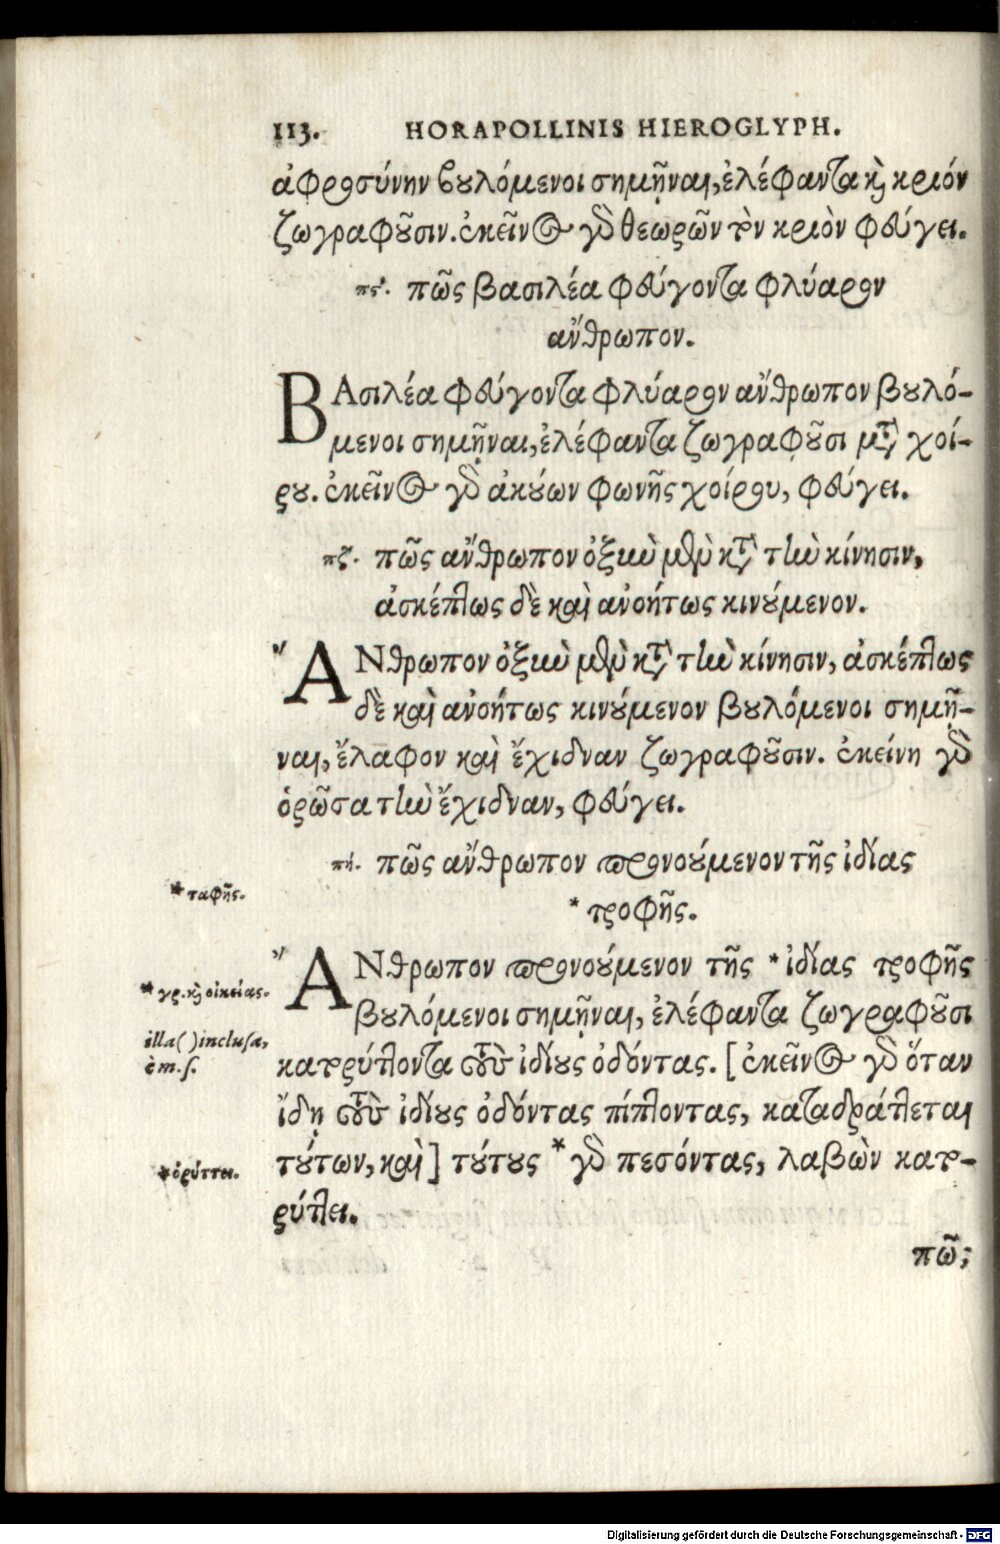 113. HORAPOLLINIS HIEROGLYPH.
ἀφροσύνην βουλόμενοι σημῆναι, ἐλέφαντα καὶ κριόν
ζωγραφοῦσιν. ἐκεῖνος γὰρ θεωρῶν τὸν κριὸν φεύγει.
πϛʹ. πῶς βασιλέα φεύγοντα φλύαρον
ἄνθρωπον.
ΒΑσιλέα φεύγοντα φλύαρον ἄνθρωπον βουλό-
μενοι σημῆναι, ἐλέφαντα ζωγραφοῦσι μετὰ χοί-
ρου. ἐκεῖνος γὰρ ἀκούων φωνῆς χοίρου, φεύγει.
πζ. πῶς ἄνθρωπον ὀξὺν μὲν κατὰ τὴν κίνησιν,
ἀσκέπτως δὲ καὶ ἀνοήτως κινούμενον.
ἌΝθρωπον ὀξὺν μὲν κατὰ τὴν κίνησιν, ἀσκέπτως
δὲ καὶ ἀνοήτως κινούμενον βουλόμενοι σημῆ-
ναι, ἔλαφον καὶ ἔχιδναν ζωγραφοῦσιν. ἐκείνη γὰρ
ὁρῶσα τὴν ἔχιδναν, φεύγει.
πή. πῶς ἄνθρωπον προνούμενον τῆς ἰδίας
* τροφῆς.
* ταφῆς.
ἌΝθρωπον προνούμενον τῆς * ἰδίας τροφῆς
* γρ. καὶ οἰκείας.
βουλόμενοι σημῆναι, ἐλέφαντα ζωγραφοῦσι
illa ( ) inclusa,
è m. s.
κατορύττοντα τοὺς ἰδίους ὀδόντας. [ ἐκεῖνος γὰρ ὅταν
ἴδῃ τοὺς ἰδίους ὀδόντας πίπτοντας, καταδράττεται
τούτων, καὶ ] τούτους * γὰρ πεσόντας, λαβὼν κατο-
* ὀρύττει.
ρύττει.
πῶς
Digitalisierung gefördert durch die Deutsche Forschungsgemeinschaft - DFG